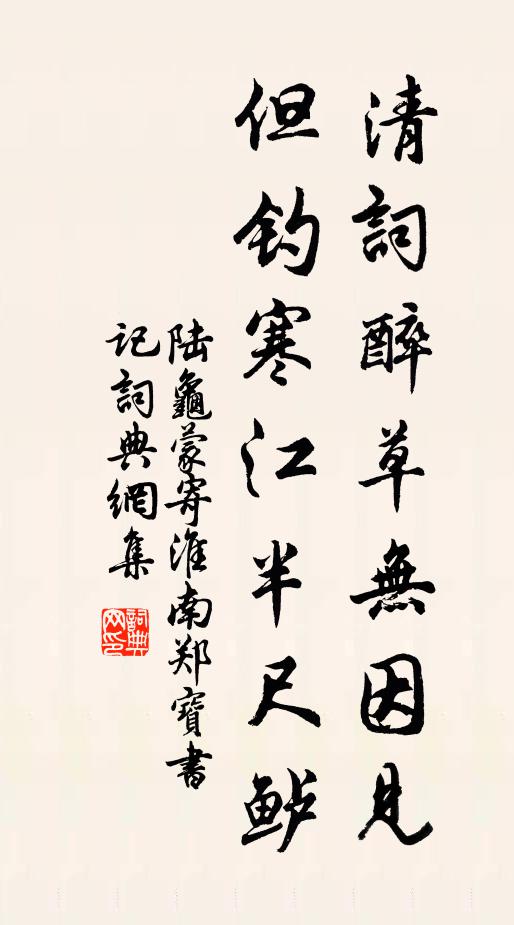 清詞醉草無因見
但钓寒江半尺鲈
陆龜蒙寄淮南郑寶書
记詞典網集
詞典网印